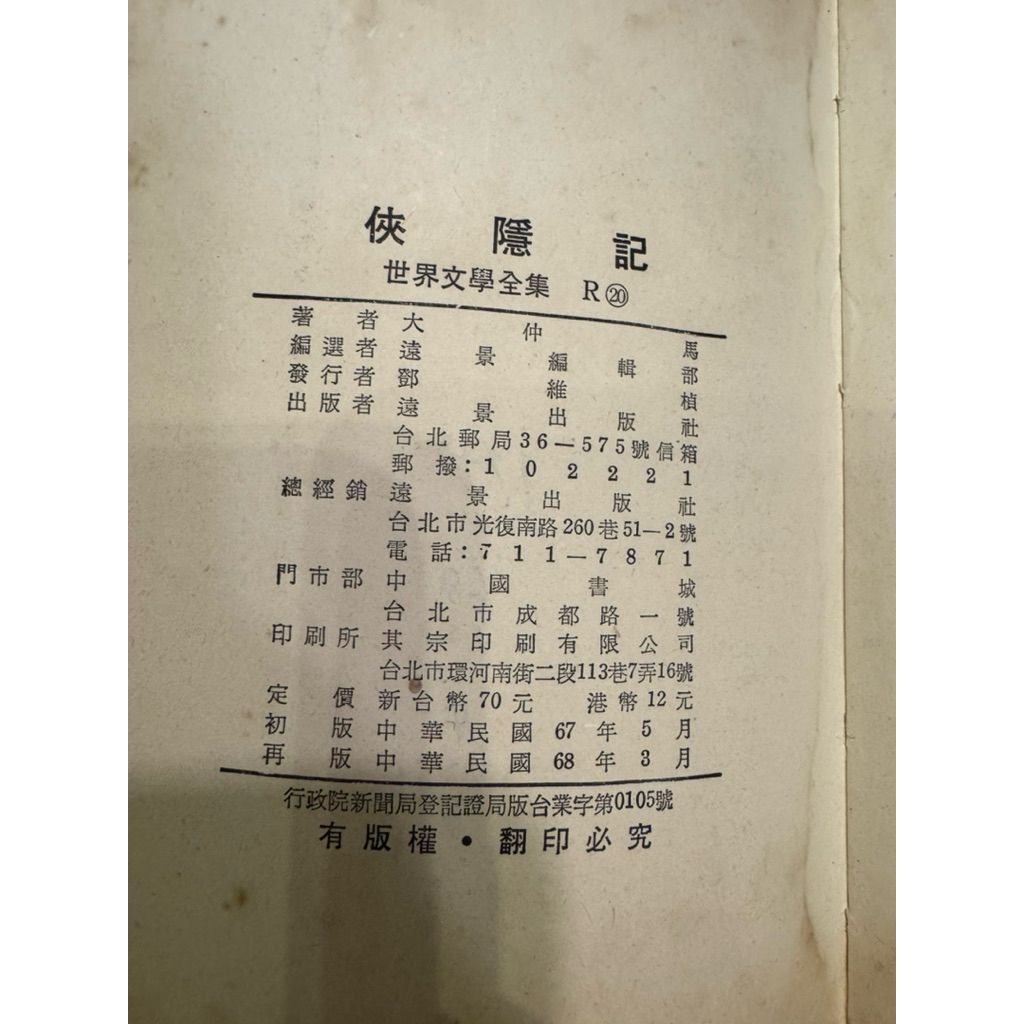 俠隱記
世界文學全集 R⑳
著者大仲馬
編選者遠景編輯部
發行者鄧維楨
出版者遠景出版社
台北郵局36—575號信箱
郵撥:102221
總經銷遠景出版社
台北市光復南路260巷51—2號
電話:711—7871
門市部中國書城
台北市成都路一號
印刷所其宗印刷有限公司
台北市環河南街二段113巷7弄16號
定價新台幣70元 港幣12元
初版中華民國67年5月
再版中華民國68年3月
行政院新聞局登記證局版台業字第0105號
有版權・翻印必究